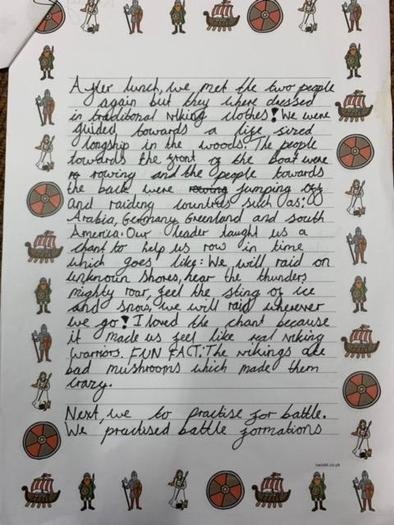 After lunch, we met the two people
again but they where dressed
in traditional viking clothes! We were
guided towards a life sized
longship in the woods. The people
towards the front of the boat were
rowing and the people towards
the back were rowing jumping off
and raiding countries such as:
Arabia, Germany, Greenland and south
America. Our leader taught us a
chant to help us row in time
which goes like: We will raid on
unknown shores, hear the thunders
mighty roar, feel the sting of ice
and snow, we will raid wherever
we go! I loved the chant because
it made us feel like real viking
warriors. FUN FACT: The vikings ate
bad mushrooms which made them
crazy.
Next, we to practise for battle.
We practised battle formations
twinkl.co.uk